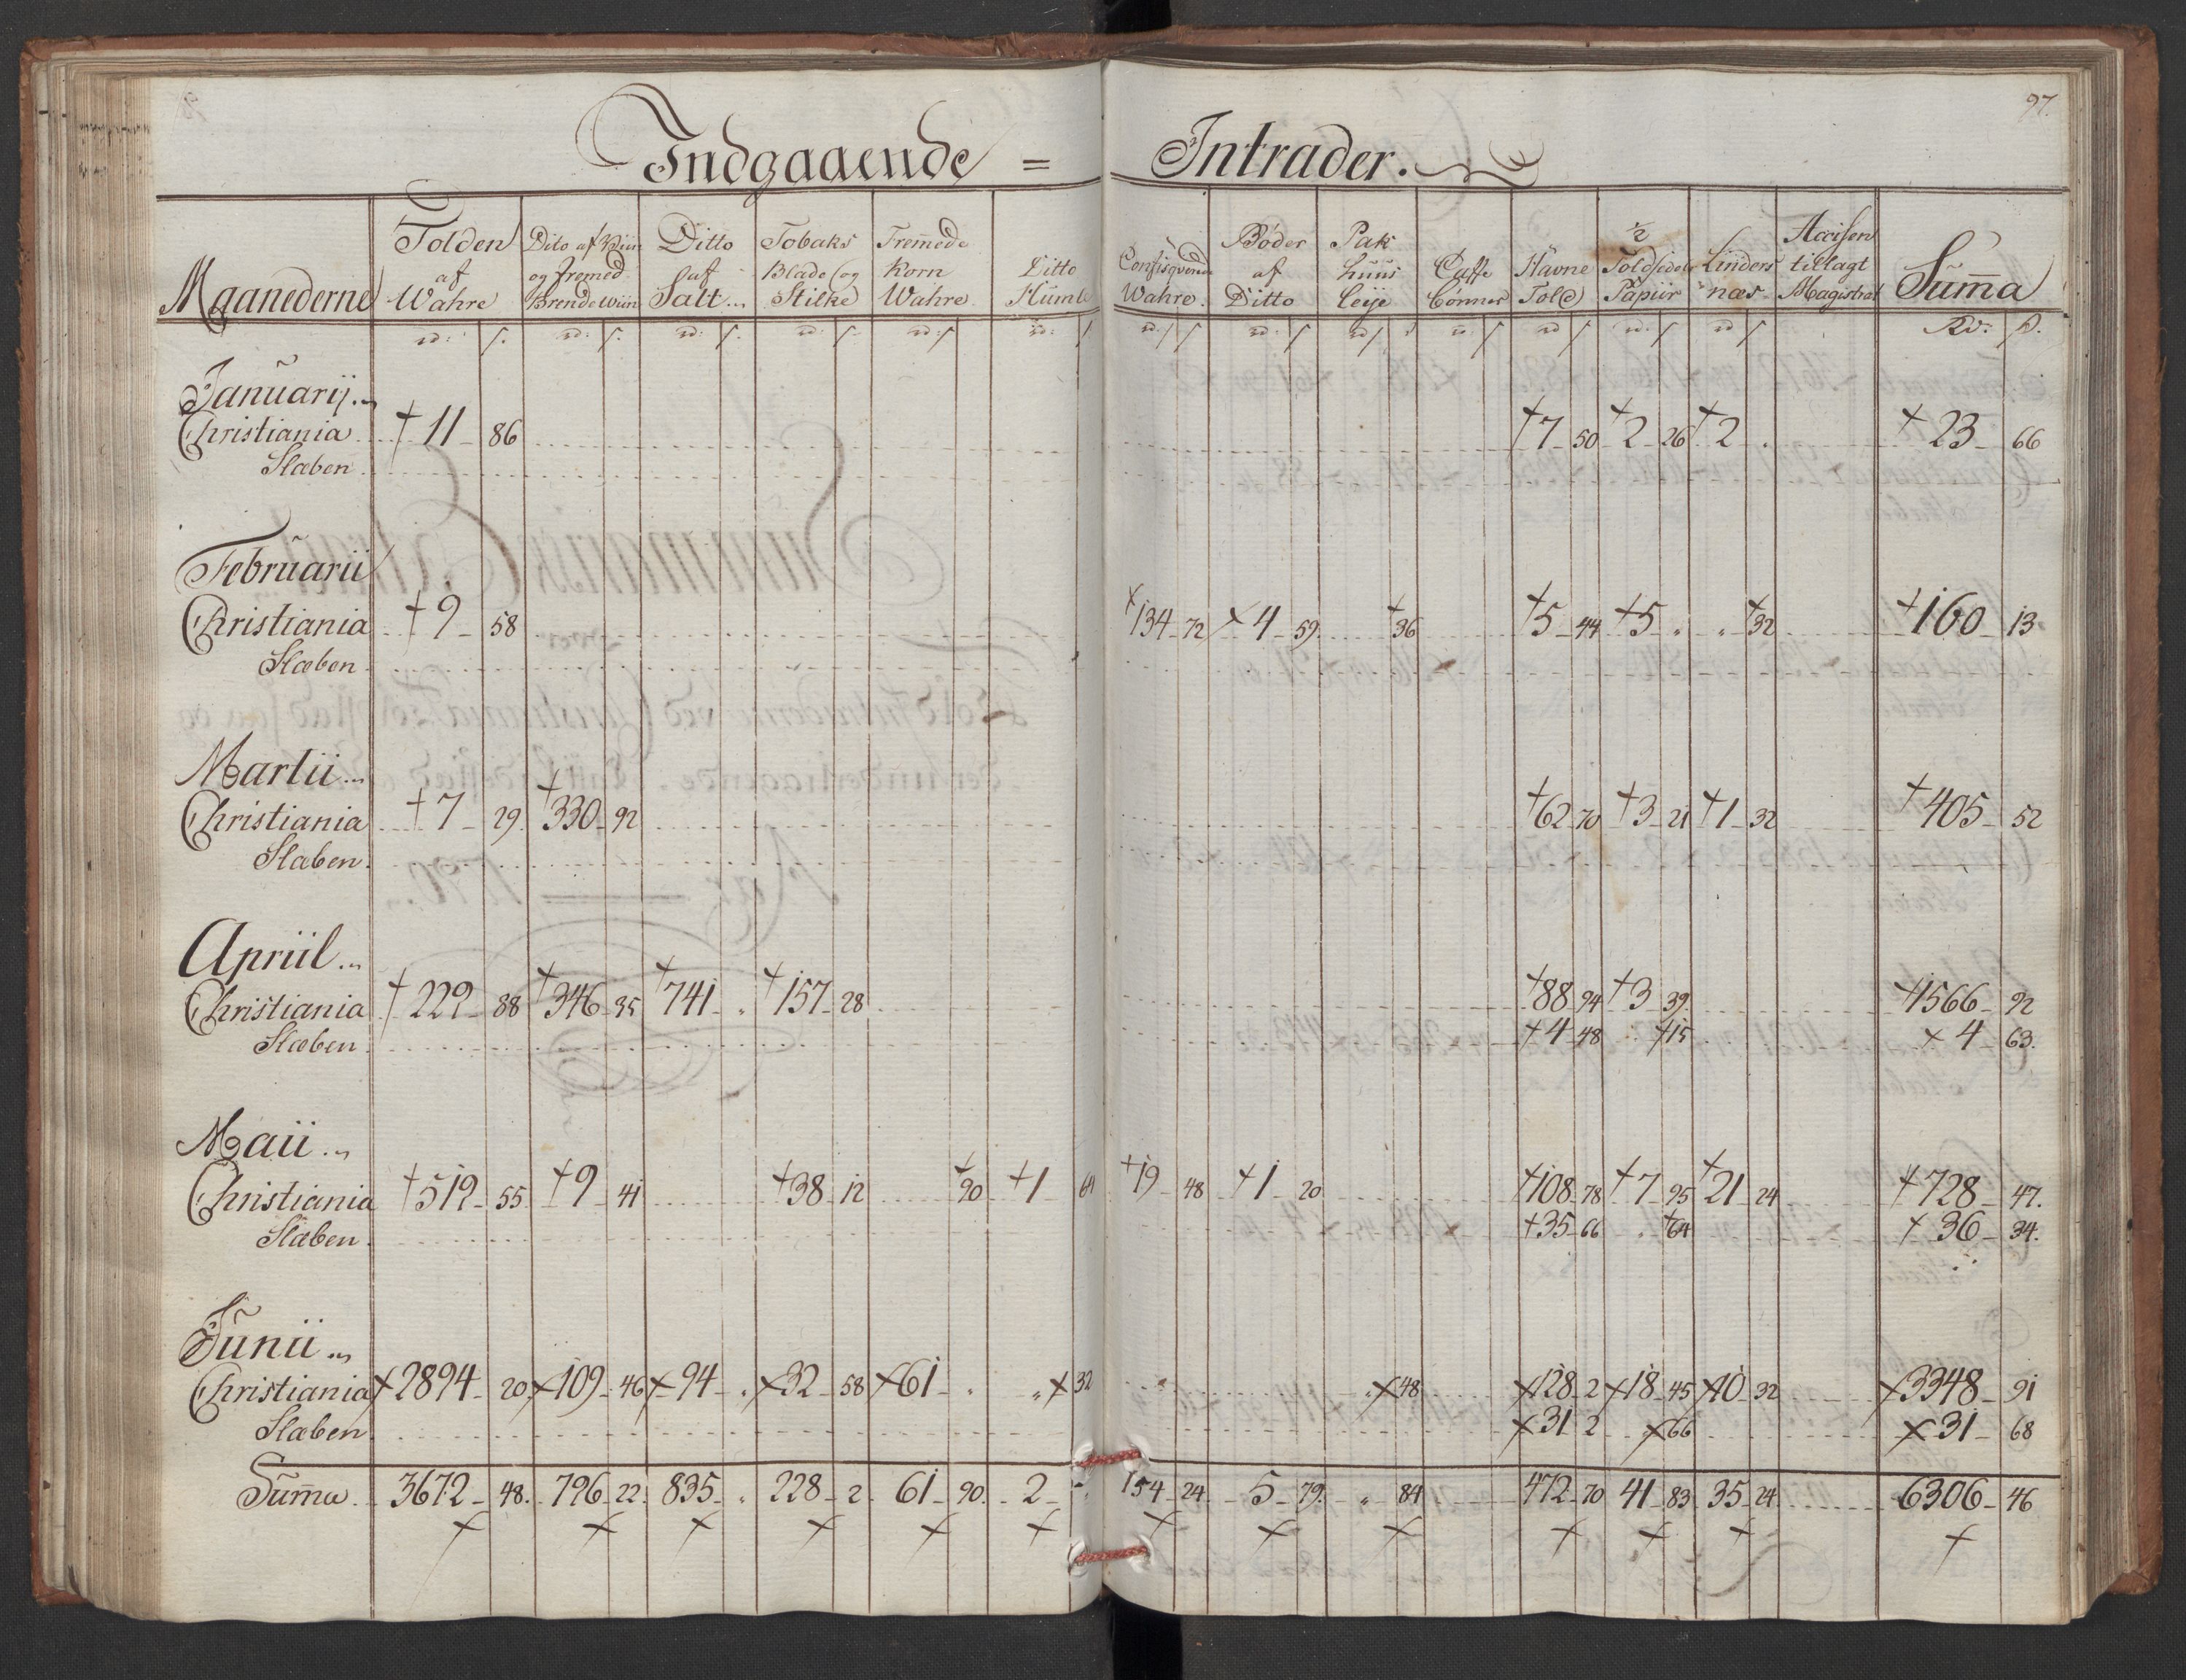 97.
Indgaaende = Intrader.
Maanederne | Tolden af Wahre | Dito af Viin og fremed Brendewiin | Ditto af Salt | Tobaks Blade og Stilke | Fremede Korn Wahre | Ditto Humle | Confisqverede Wahre. | Bøder af Ditto | Pak huus Leije | Caffe Cornner | Havne Told | ½ Toldsedel Papiir | Linders næs | Accisen tillagt Magistrat | Suma
rd: s. | rd: s. | rd: s. | rd: s. | rd: s | rd: s | rd: s | rd: s | rd s | rd: s | rd s | rd: s | rd s | Rd: s.
Januarij
Christiania | 11 86 | 7 50 | 2 26 | 2 . | 23 66
Slæben
Februarii
Christiania | 9 58 | 134 72 | 4 59 | 36 | 5 44 | 5 " | " 32 | 160 13
Slæben
Martii
Christiania | 7 29 | 330 92 | 62 70 | 3 21 | 1 32 | 405 52
Slæben
Apriil
Christiania | 229 88 | 346 35 | 741 " | 157 28 | 88 94 | 3 39 | 1566 92
Slæben | 4 48 | 15 | 4 63
Maii
Christiania | 519 55 | 9 41 | 38 12 | 90 | 1 64 | 19 48 | 1 20 | 108 78 | 7 95 | 21 24 | 728 47.
Slæben | 35 66 | " 64 | 36 34.
Junii
Christiania | 2894 20 | 109 46 | 94 " | 32 58 | 61 " | " 32 | " 48 | 128 2 | 18 45 | 10 32 | 3348 91
Slæben | 31 2 | 66 | 31 68
Suma | 3672 48. | 796 22. | 835 " | 228 2 | 61 90. | 2 " | 154 24 | 5 79. | " 84 | 472 70 | 41 83 | 35 24 | 6306 46